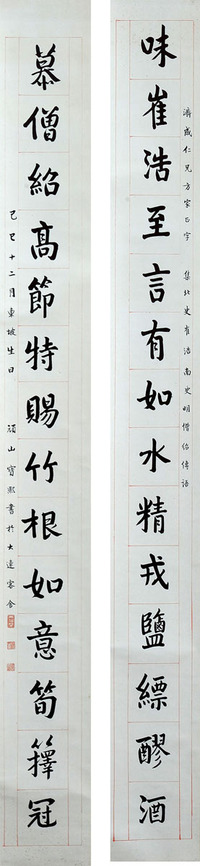 仁兄方家正字 集北史崔浩南史明僧紹傳語
味崔浩至言有如水精戎鹽縹醪酒
慕僧紹高節特賜竹根如意筍籜冠
己巳十二月東坡生日 頑山寶熙書於大連客舍